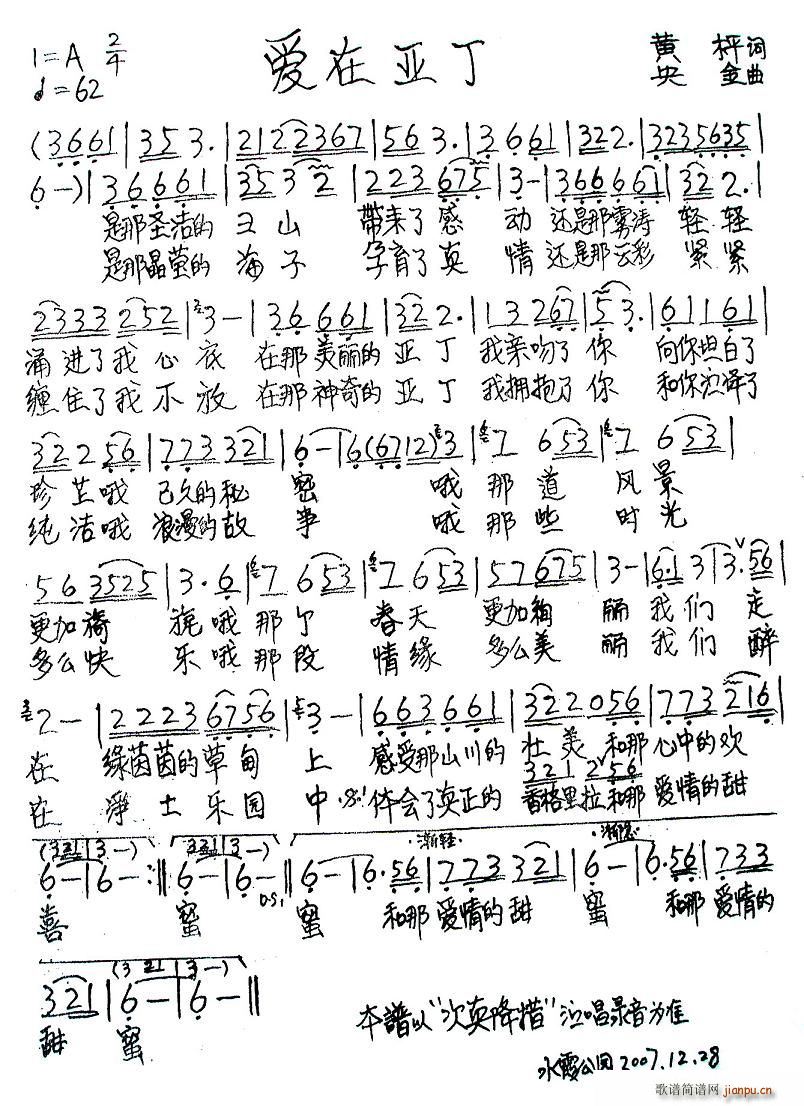 1=A 2/4
爱在亚丁
黄 枰 词
♩=62
央 金 曲
(3661|353.|2122 2367|563.|3661|322.|32356535|
6-)|36661|353 2|223675|3-|366661|322.|
是那圣洁的 山 带来了感 动 还是那雾涛 轻 轻
是那晶莹的 海 子 孕育了真 情 还是那云彩 紧 紧
2333 252|3-|36661|322.|13267|53.|61161|
涌进了我心底 在那美丽的亚丁 我亲吻了你 向你坦白了
缠住了我不放 在那神奇的亚丁 我拥抱了你 和你演译了
32256|773321|6-|6(6712)3|7653|7653|
珍芷哦 已久的秘 密 哦 那道 风景
纯洁哦 浪漫的故 事 哦 那些 时光
563525|3.6|7653|7653|57675|3-|6.13|3.56|
更加旖 旎哦那个 春天 更加绚 丽 我们 走
多么快 乐哦那段 情缘 多么美 丽 我们 醉
2-|22236756|3-|663661|322056|773216|
在 绿茵茵的草甸 上 感受那山川的 壮美 和那心中的欢
321 2 56
在 净土乐园 中 体会了真正的 香格里拉和那 爱情的甜
(321|3-) (321|3-) 渐轻 渐轻
6-|6-:‖6-|6-‖6-|6.56|773321|6-|6.56|733
D.S.
喜 蜜 蜜 和那 爱情的甜 蜜 和那 爱情的
(321|3-)
321|6-|6-‖
甜 蜜
本谱以“次真降措”演唱录音为准
水霞公园 2007.12.28
歌谱简谱网 jianpu.cn